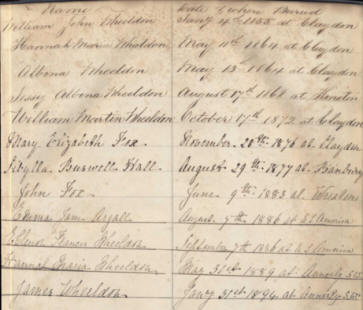 Name Date & where Buried
William John Wheeldon Jany 4th 1855 at Claydon
Hannah Maria Wheeldon May 11th 1864 at Claydon
Albona Wheeldon May 13th 1864 at Claydon
Jessy Albona Wheeldon August 17th 1868 at
William Martin Wheeldon October 17th 1872 at Claydon
Mary Elizabeth Fox November 28th 1876 at Claydon
Buswell Hall August 29th 1877 at Banbury
John Fox June 9th 1883 at
Emma Jane August 1886 at
Elleno Frances Wheeldon September 7th 1886 at
Hannah Maria Wheeldon May 31st 1889 at
James Wheeldon Jany 31st 1894 at